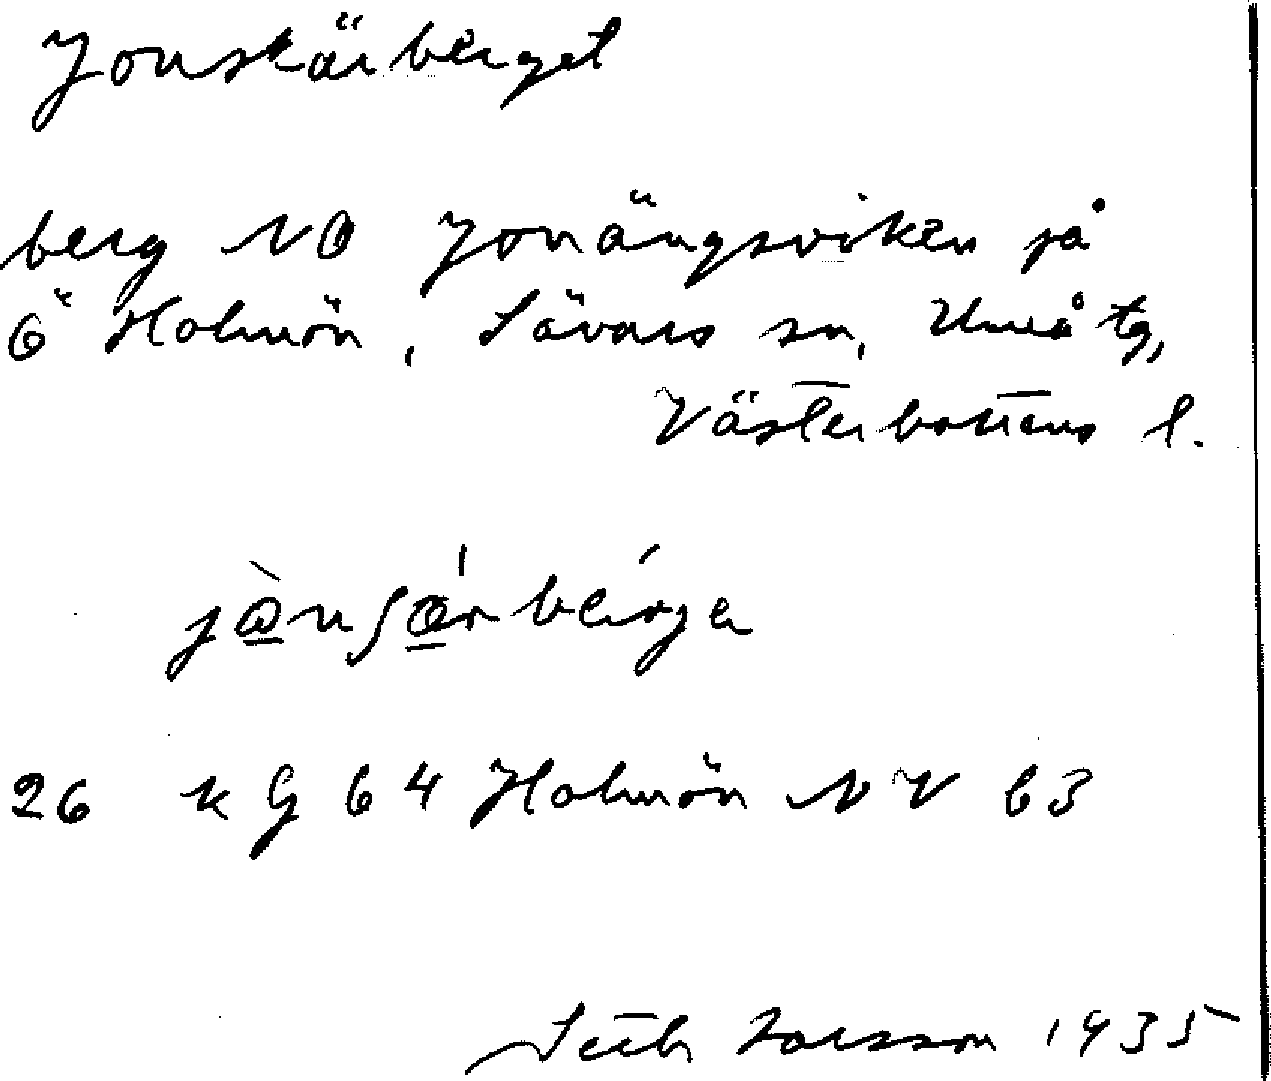 Jonskärberget
berg NO Jonängsviken på
Ö Holmön, Sävars sn, Umeå tg,
Västerbottens l.
26 k G 64 Holmön NV 63
Seth Larsson 1935